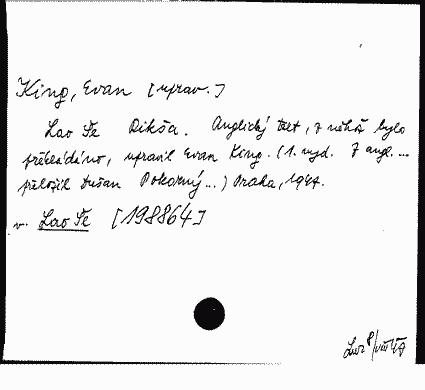 King, Evan [uprav.]
Lao Še Rikša. Anglický text, z něhož bylo
překládáno, upravil Evan King. (1. vyd. Z angl. ...
přeložil Dušan Pokorný ...) Praha, 1947.
v. Lao Še [198864]